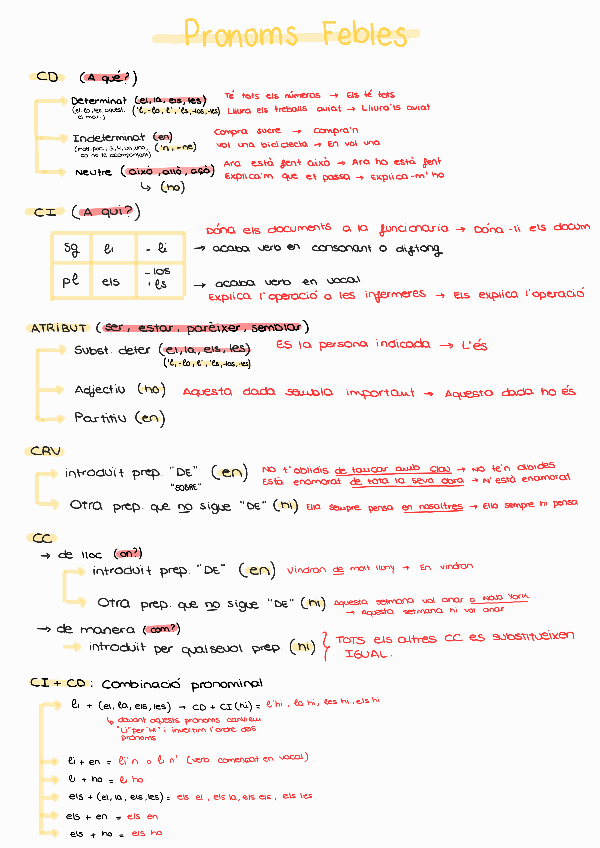 Pronoms Febles
CD (A què?)
Determinat (el, la, els, les)
('l, -lo, l', 'ls, -los, -les)
Té tots els números → Els té tots
Lliura els treballs aviat → Lliura'ls aviat
Indeterminat (en)
('n, -ne)
Compra sucre → compra'n
Vol una bicicleta → En vol una
Neutre (això, allò, açò)
↳ (ho)
Ara està fent això → Ara ho està fent
Explica'm que et passa → explica-m'ho
CI (A qui?)
Dóna els documents a la funcionaria → Dóna-li els docum
sg li -li → acaba verb en consonant o diftong
pl els -los 'ls → acaba verb en vocal
Explica l'operació a les infermeres → Els explica l'operació
ATRIBUT (ser, estar, parèixer, semblar)
Subst. deter (el, la, els, les)
('l, -lo, l', 'ls, -los, -les)
ES la persona indicada → L'és
Adjectiu (ho) Aquesta dada sembla important → Aquesta dada ho és
Partitiu (en)
CRV
introduït prep. "DE" (en)
"SOBRE"
No t'oblidis de tancar amb clau → No te'n oblides
Està enamorat de tota la seva obra → N'està enamorat
Otra prep. que no sigue "DE" (hi) Ella sempre pensa en nosaltres → Ella sempre hi pensa
CC
→ de lloc (on?)
introduït prep. "DE" (en) Vindran de molt lluny → En vindran
Otra prep. que no sigue "DE" (hi) Aquesta setmana vol anar a Nova York
→ Aquesta setmana hi vol anar
→ de manera (com?)
introduït per qualsevol prep (hi)
TOTS els altres CC es substitueixen
IGUAL.
CI + CD: Combinació pronominal
li + (el, la, els, les) → CD + CI (hi) = l'hi, la hi, les hi, els hi
↳ davant aquests pronoms canviem
"Li" per "Hi" i invertim l'ordre dels
pronoms
li + en = li'n o li n' (verb començat en vocal)
li + ho = li ho
els + (el, la, els, les) = els el, els la, els els, els les
els + en = els en
els + ho = els ho